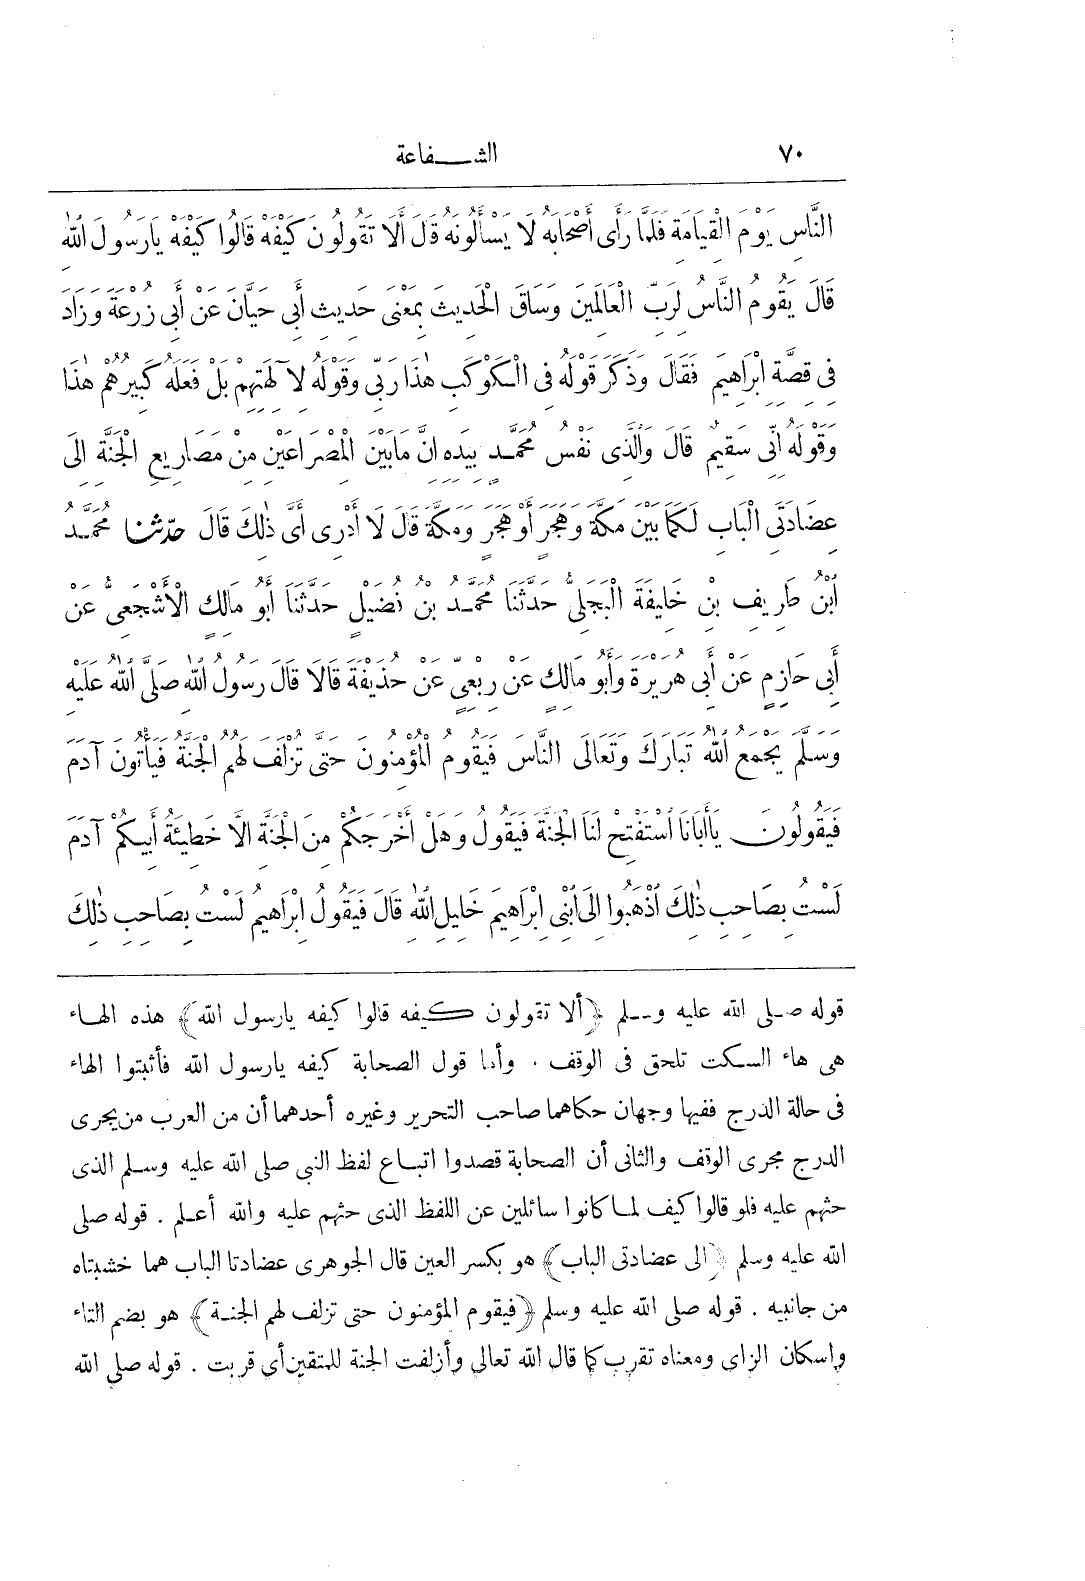 ٧٠ الشفاعة
النَّاسِ يَوْمَ الْقِيَامَةِ فَلَمَّا رَأَى أَصْحَابَهُ لَا يَسْأَلُونَهُ قَالَ أَلَا تَقُولُونَ كَيْفَهْ قَالُوا كَيْفَهْ يَارَسُولَ اللهِ
قَالَ يَقُومُ النَّاسُ لِرَبِّ الْعَالَمِينَ وَسَاقَ الْحَدِيثَ بِمَعْنَى حَدِيثِ أَبِى حَيَّانَ عَنْ أَبِى زُرْعَةَ وَزَادَ
فِى قِصَّةِ إِبْرَاهِيمَ فَقَالَ وَذَكَرَ قَوْلَهُ فِى الْكَوْكَبِ هٰذَا رَبِّى وَقَوْلَهُ لِآلِهَتِهِمْ بَلْ فَعَلَهُ كَبِيرُهُمْ هٰذَا
وَقَوْلَهُ إِنِّى سَقِيمٌ قَالَ وَالَّذِى نَفْسُ مُحَمَّدٍ بِيَدِهِ إِنَّ مَابَيْنَ الْمِصْرَاعَيْنِ مِنْ مَصَارِيعِ الْجَنَّةِ إِلَى
عِضَادَتَىِ الْبَابِ لَكَمَا بَيْنَ مَكَّةَ وَهَجَرٍ أَوْ هَجَرٍ وَمَكَّةَ قَالَ لَا أَدْرِى أَىَّ ذٰلِكَ قَالَ حَدّثَنا مُحَمَّدُ
ابْنُ طَرِيفِ بْنِ خَلِيفَةَ الْبَجَلِىُّ حَدَّثَنَا مُحَمَّدُ بْنُ فُضَيْلٍ حَدَّثَنَا أَبُو مَالِكٍ الْأَشْجَعِىُّ عَنْ
أَبِى حَازِمٍ عَنْ أَبِى هُرَيْرَةَ وَأَبُو مَالِكٍ عَنْ رِبْعِىٍّ عَنْ حُذَيْفَةَ قَالَا قَالَ رَسُولُ اللهِ صَلَّى اللهُ عَلَيْهِ
وَسَلَّمَ يَجْمَعُ اللهُ تَبَارَكَ وَتَعَالَى النَّاسَ فَيَقُومُ الْمُؤْمِنُونَ حَتَّى تُزْلَفَ لَهُمُ الْجَنَّةُ فَيَأْتُونَ آدَمَ
فَيَقُولُونَ يَاأَبَانَا اسْتَفْتِحْ لَنَا الْجَنَّةَ فَيَقُولُ وَهَلْ أَخْرَجَكُمْ مِنَ الْجَنَّةِ إِلَّا خَطِيئَةُ أَبِيكُمْ آدَمَ
لَسْتُ بِصَاحِبِ ذٰلِكَ اذْهَبُوا إِلَى ابْنِى إِبْرَاهِيمَ خَلِيلِ اللهِ قَالَ فَيَقُولُ إِبْرَاهِيمُ لَسْتُ بِصَاحِبِ ذٰلِكَ
قوله صلى الله عليه وسلم ﴿ألا تقولون كيفه قالوا كيفه يارسول الله﴾ هذه الهاء
هى هاء السكت تلحق فى الوقف . وأما قول الصحابة كيفه يارسول الله فأثبتوا الهاء
فى حالة الدرج ففيها وجهان حكاهما صاحب التحرير وغيره أحدهما أن من العرب من يجرى
الدرج مجرى الوقف والثانى أن الصحابة قصدوا اتباع لفظ النبى صلى الله عليه وسلم الذى
حثهم عليه فلو قالوا كيف لما كانوا سائلين عن اللفظ الذى حثهم عليه والله أعلم . قوله صلى
الله عليه وسلم ﴿إلى عضادتى الباب﴾ هو بكسر العين قال الجوهرى عضادتا الباب هما خشبتاه
من جانبيه . قوله صلى الله عليه وسلم ﴿فيقوم المؤمنون حتى تزلف لهم الجنة﴾ هو بضم التاء
وإسكان الزاى ومعناه تقرب كما قال الله تعالى وأزلفت الجنة للمتقين أى قربت . قوله صلى الله